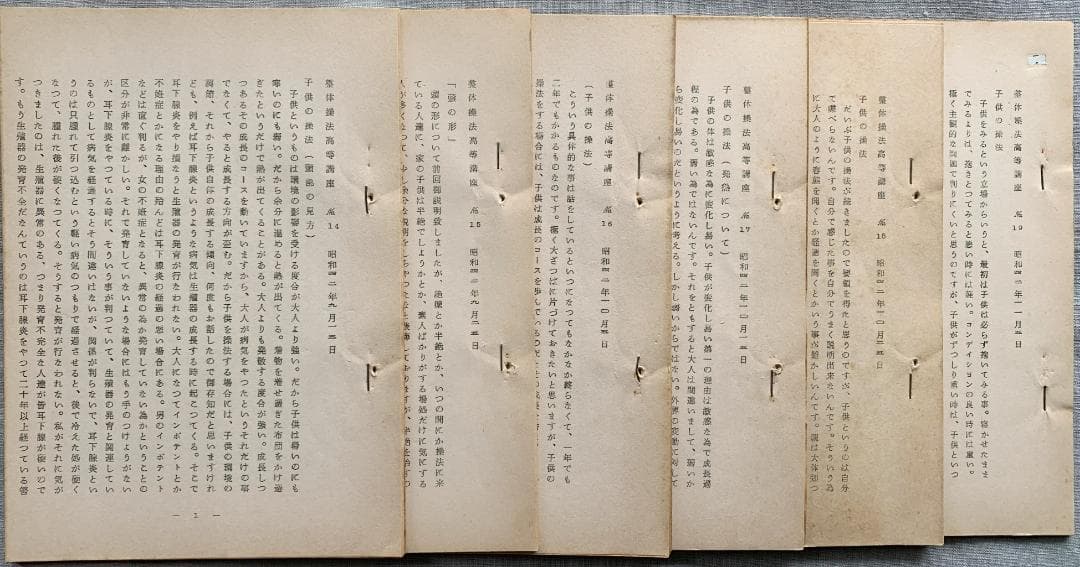 整体操法高等講座 №14 昭和四二年九月一五日
子供の操法(頭の見方)
子供というものは環境の影響を受ける度合が大人より強い。だから子供は暑いのにも
寒いのにも弱い。だから余分に温めると熱が出てくる。着物を着せ過ぎたり布団をかけ過
ぎたというだけで熱が出てくることがある。大人よりも発散する度合が強い。成長しつ
つあるその成長のコースを動いていますから、大人が病気をやつたというそれだけの事
でなくて、やると成長する方向が歪む。だから子供を操法する場合には、子供の環境の
問題、それから子供自体の成長する傾向、何度もお話したので御存知だと思いますけれ
ども、例えば耳下腺炎というような病気は生殖器の成長する時に起こつてくる。そこで
耳下腺炎をやり損なうと生殖器の発育が行なわれない。大人になつてインポテントとか
不妊症とかになる理由の殆んどは耳下腺炎の経過の悪い場合にある。男のインポテント
などは直ぐ判るが、女の不妊症となると、異常の為か発育していない為かということの
区分が非常に難かしい。それで発育していないような場合にはもう手のつけようがない
が、耳下腺炎をやつている時に、そういう事が判つていて、生殖器の発育と関連してい
るものとして病気を経過するとそう間違いはないが、関係が判らないで、耳下腺炎とい
うのは只腫れて引つ込むという軽い病気のつもりで経過させると、後で冷えた処が硬く
なつて、腫れた後が硬くなつてくる。そうすると発育が行なわれない。私がそれに気が
つきましたのは、生殖器に異常のある、つまり発育不完全な人達が皆耳下腺が硬いので
す。もう生殖器の発育不全だなんていうのは耳下腺炎をやつて二十年以上経つている管
— 1 —
整体操法高等講座 №15 昭和四二年九月二五日
「頭の形」
頭の形について前回御説明致しましたが、
ている人達に、家の子供は半絶でしようかとか、素人ばかりがする場処だけに気にする
整体操法高等講座 №16 昭和四二年一〇月五日
(子供の操法)
こういう具体的な事は話をしているといつになつてもなかなか終らなくて、一年でも
二年でもかかるものなのです。極く大ざつぱに片づけておきたいと思いますが、子供の
操法をする場合には、子供は成長のコースを歩んでいる
整体操法高等講座 №17 昭和四二年一〇月一五日
子供の操法(発熱について)
子供の体は敏感な為に変化し易い。子供が変化し易い第一の理由は敏感な為で成長過
程の為である。弱い為ではないんです。それをともすると大人は間違いまして、弱いか
ら変化し易いのだというように考える。しかし弱いからではない。外界の変動に対して
整体操法高等講座 №18 昭和四二年一〇月二五日
子供の操法
だいぶ子供の操法が続きましたので要領を得たと思うのですが、子供というのは自分
で喋べらないんです。自分で感じた事を自分でうまく説明出来ないんです。そういう為
に大人のように容態を聞くとか経過を聞くとかいう事が難かしいんです。親は大体知つ
整体操法高等講座 №19 昭和四二年一一月五日
子供の操法
子供をみるという立場からいうと、最初は子供は必らず抱いてみる事。寝かせたまま
でみるよりは、抱き上つてみると悪い時には軽い。コンデイシヨンの良い時には重い。
極く主観的な問題で判りにくいと思うのですが、子供がずつしり重い時は、子供とい